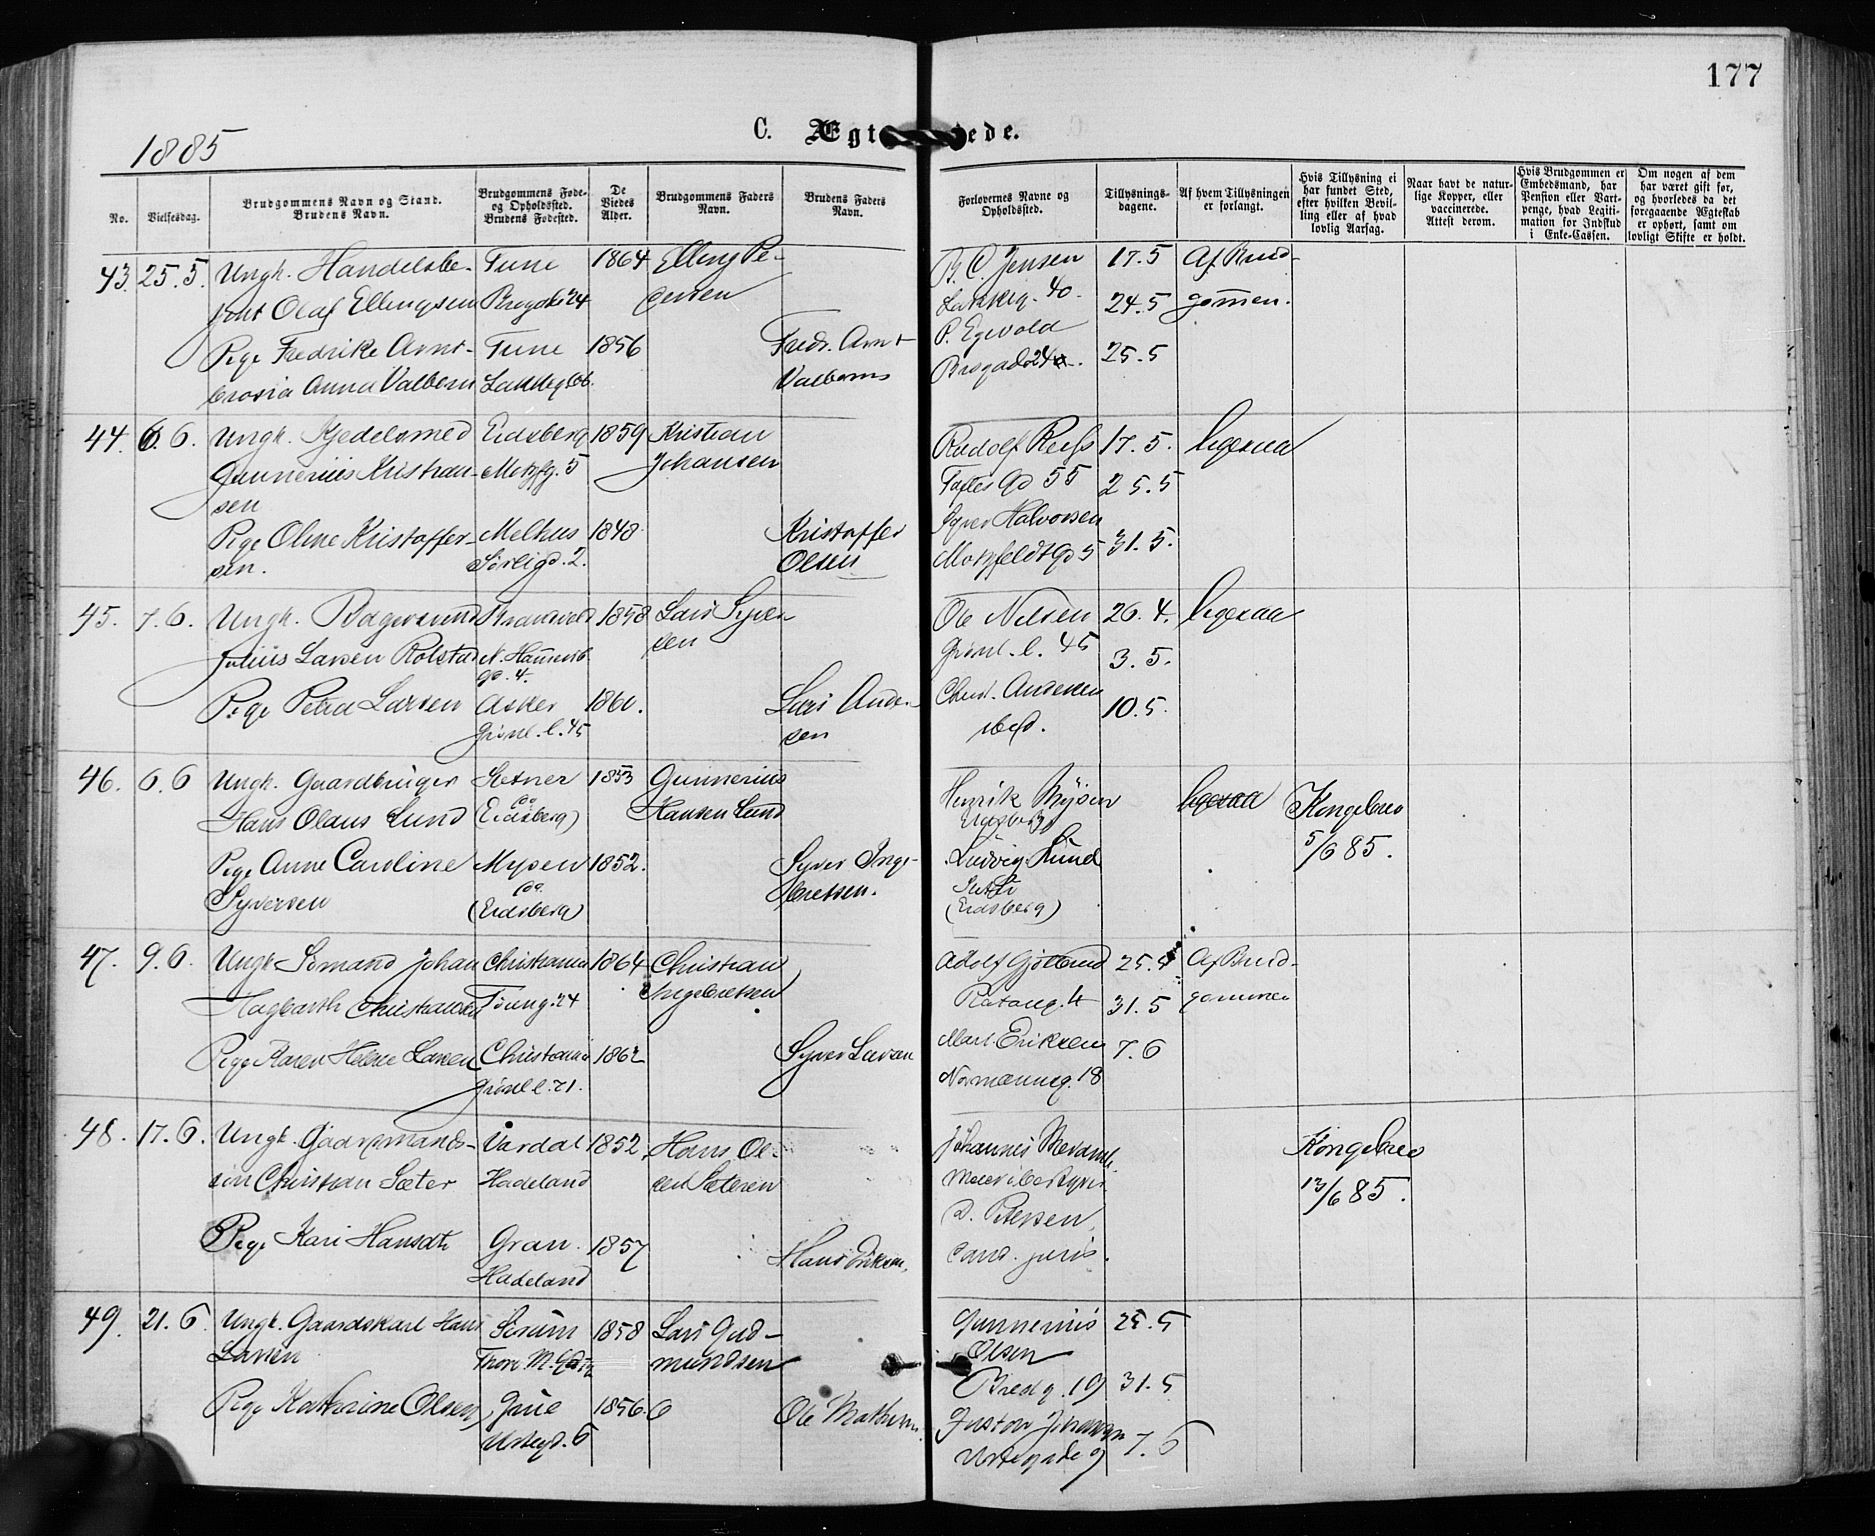 177
C. Ægt ede.
1885
No.
Vielsesdag.
Brudgommens Navn og Stand.
Brudens Navn.
Brudgommens Føde-
og Opholdssted.
Brudens Fødested.
De
Viedes
Alder.
Brudgommens Faders
Navn.
Brudens Faders
Navn.
Forlovernes Navne og
Opholdssted.
Tillysnings-
dagene.
Af hvem Tillysningen
er forlangt.
Hvis Tillysning ei
har fundet Sted,
efter hvilken Bevil-
ling eller af hvad
lovlig Aarsag.
Naar havt de natur-
lige Kopper, eller
vaccinerede.
Attest derom.
Hvis Brudgommen er
Embedsmand, har
Pension eller Vart-
penge, hvad Legiti-
mation for Indskud
i Enke-Cassen.
Om nogen af dem
har været gift før,
og hvorledes da det
foregaaende Ægteskab
er ophørt, samt om
lovligt Skifte er holdt.
43. 25.5. Ungk. Handelsbe- Tune 1864 Elling Pe- B. C. Jensen 17.5 Af Brud-
Olaf Ellingsen 24 dersen Lakkeg. 40. 24.5 gommen.
P. Egevold
Pige Fredrike Arnt- Tune 1856 Fredr. Arnt 25.5
Anna Valborn Lakkeg 66. Valborns
44. 6.6. Ungk. Kjedelsmed Eidsberg 1859 Kristian Rudolf 17.5. ligesaa
Gunnerius Kristian- Motzfg. 5 Johansen Toftes Gd 55 25.5
sen
Pige Oline Kristoffer- Melhus 1848. Kristoffer Syver Halvorsen
sen. Sørligd. 2. Olsen Motzfeldt Gd 5 31.5.
45. 7.6. Ungk. Bagersvend 1858 Lars Syver Ole Nilsen 26.4. ligesaa
Julius Larsen Rolstad N. Hammersb sen Grønl. l. 45 3.5.
gd. 4.
Pige Petra Larsen Asker 1860. Lars Ander Christ. Andersen 10.5.
Grønl. l. 45 sen ibid.
46. 6.6 Ungk. Gaardbruger 1853 Gunnerius Henrik Mysen ligesaa Kongebrev
Hans Olaus Lund (Eidsberg) Hansen Lund Eidsberg 5/6 85.
Pige Anne Caroline Mysen 1852. Syver Inge- Ludvig Lund
Syversen (Eidsberg) bretsen. (Eidsberg)
47. 9.6. Ungk. Sømand Johan Christiania 1864 Christian Adolf 25.5 Af Brud-
Hagbarth Christiansen Tøieng. 24 Ingebretsen 4 31.5 gommen
Pige Karen Helene Larsen Christiania 1862 Syver Larsen Mart. Eriksen 7.6
Grønl l. 21. Normannsg. 18
48. 17.6. Ungk. Gaardmands- Vardal 1852 Hans Ol- Johannes Kongebrev
søn Christian Sæter Hadeland sen Sæteren 13/6 85.
Pige Kari Hansdt. Gran 1857 Hans Eriksen. Petersen,
Hadeland cand. juris.
49. 21.6. Ungk. Gaardskarl Hans Sørum 1858 Lars Gud- Gunnerius 25.5
Larsen Thorv. M. mundsen Olsen
Bredg. 19 31.5
Pige Kathrine Olsen 1856. Ole Gustav Johansen 7.6
Urtegd. 6 Urtegade 9